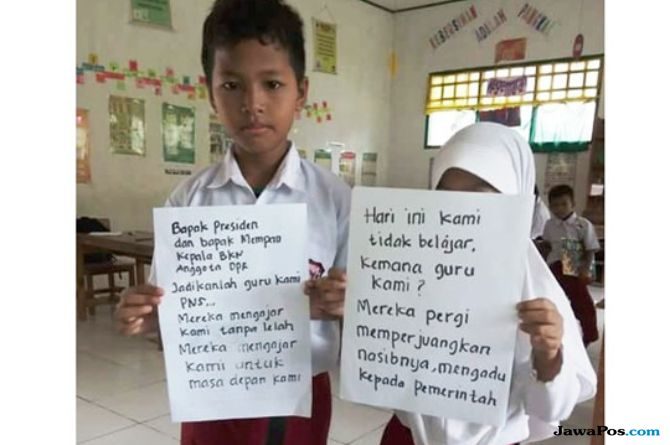 KEBERSIHAN
ADALAH
PANGKAL
Bapak Presiden
dan bapak Menpan
Kepala BKN
Anggota DPR
Jadikanlah guru kami
PNS...
Mereka mengajar
kami tanpa lelah
Mereka mengajar
kami untuk
masa depan kami
Hari ini kami
tidak belajar,
kemana guru
kami?
Mereka pergi
memperjuangkan
nasibnya, mengadu
kepada Pemerintah
JawaPos.com